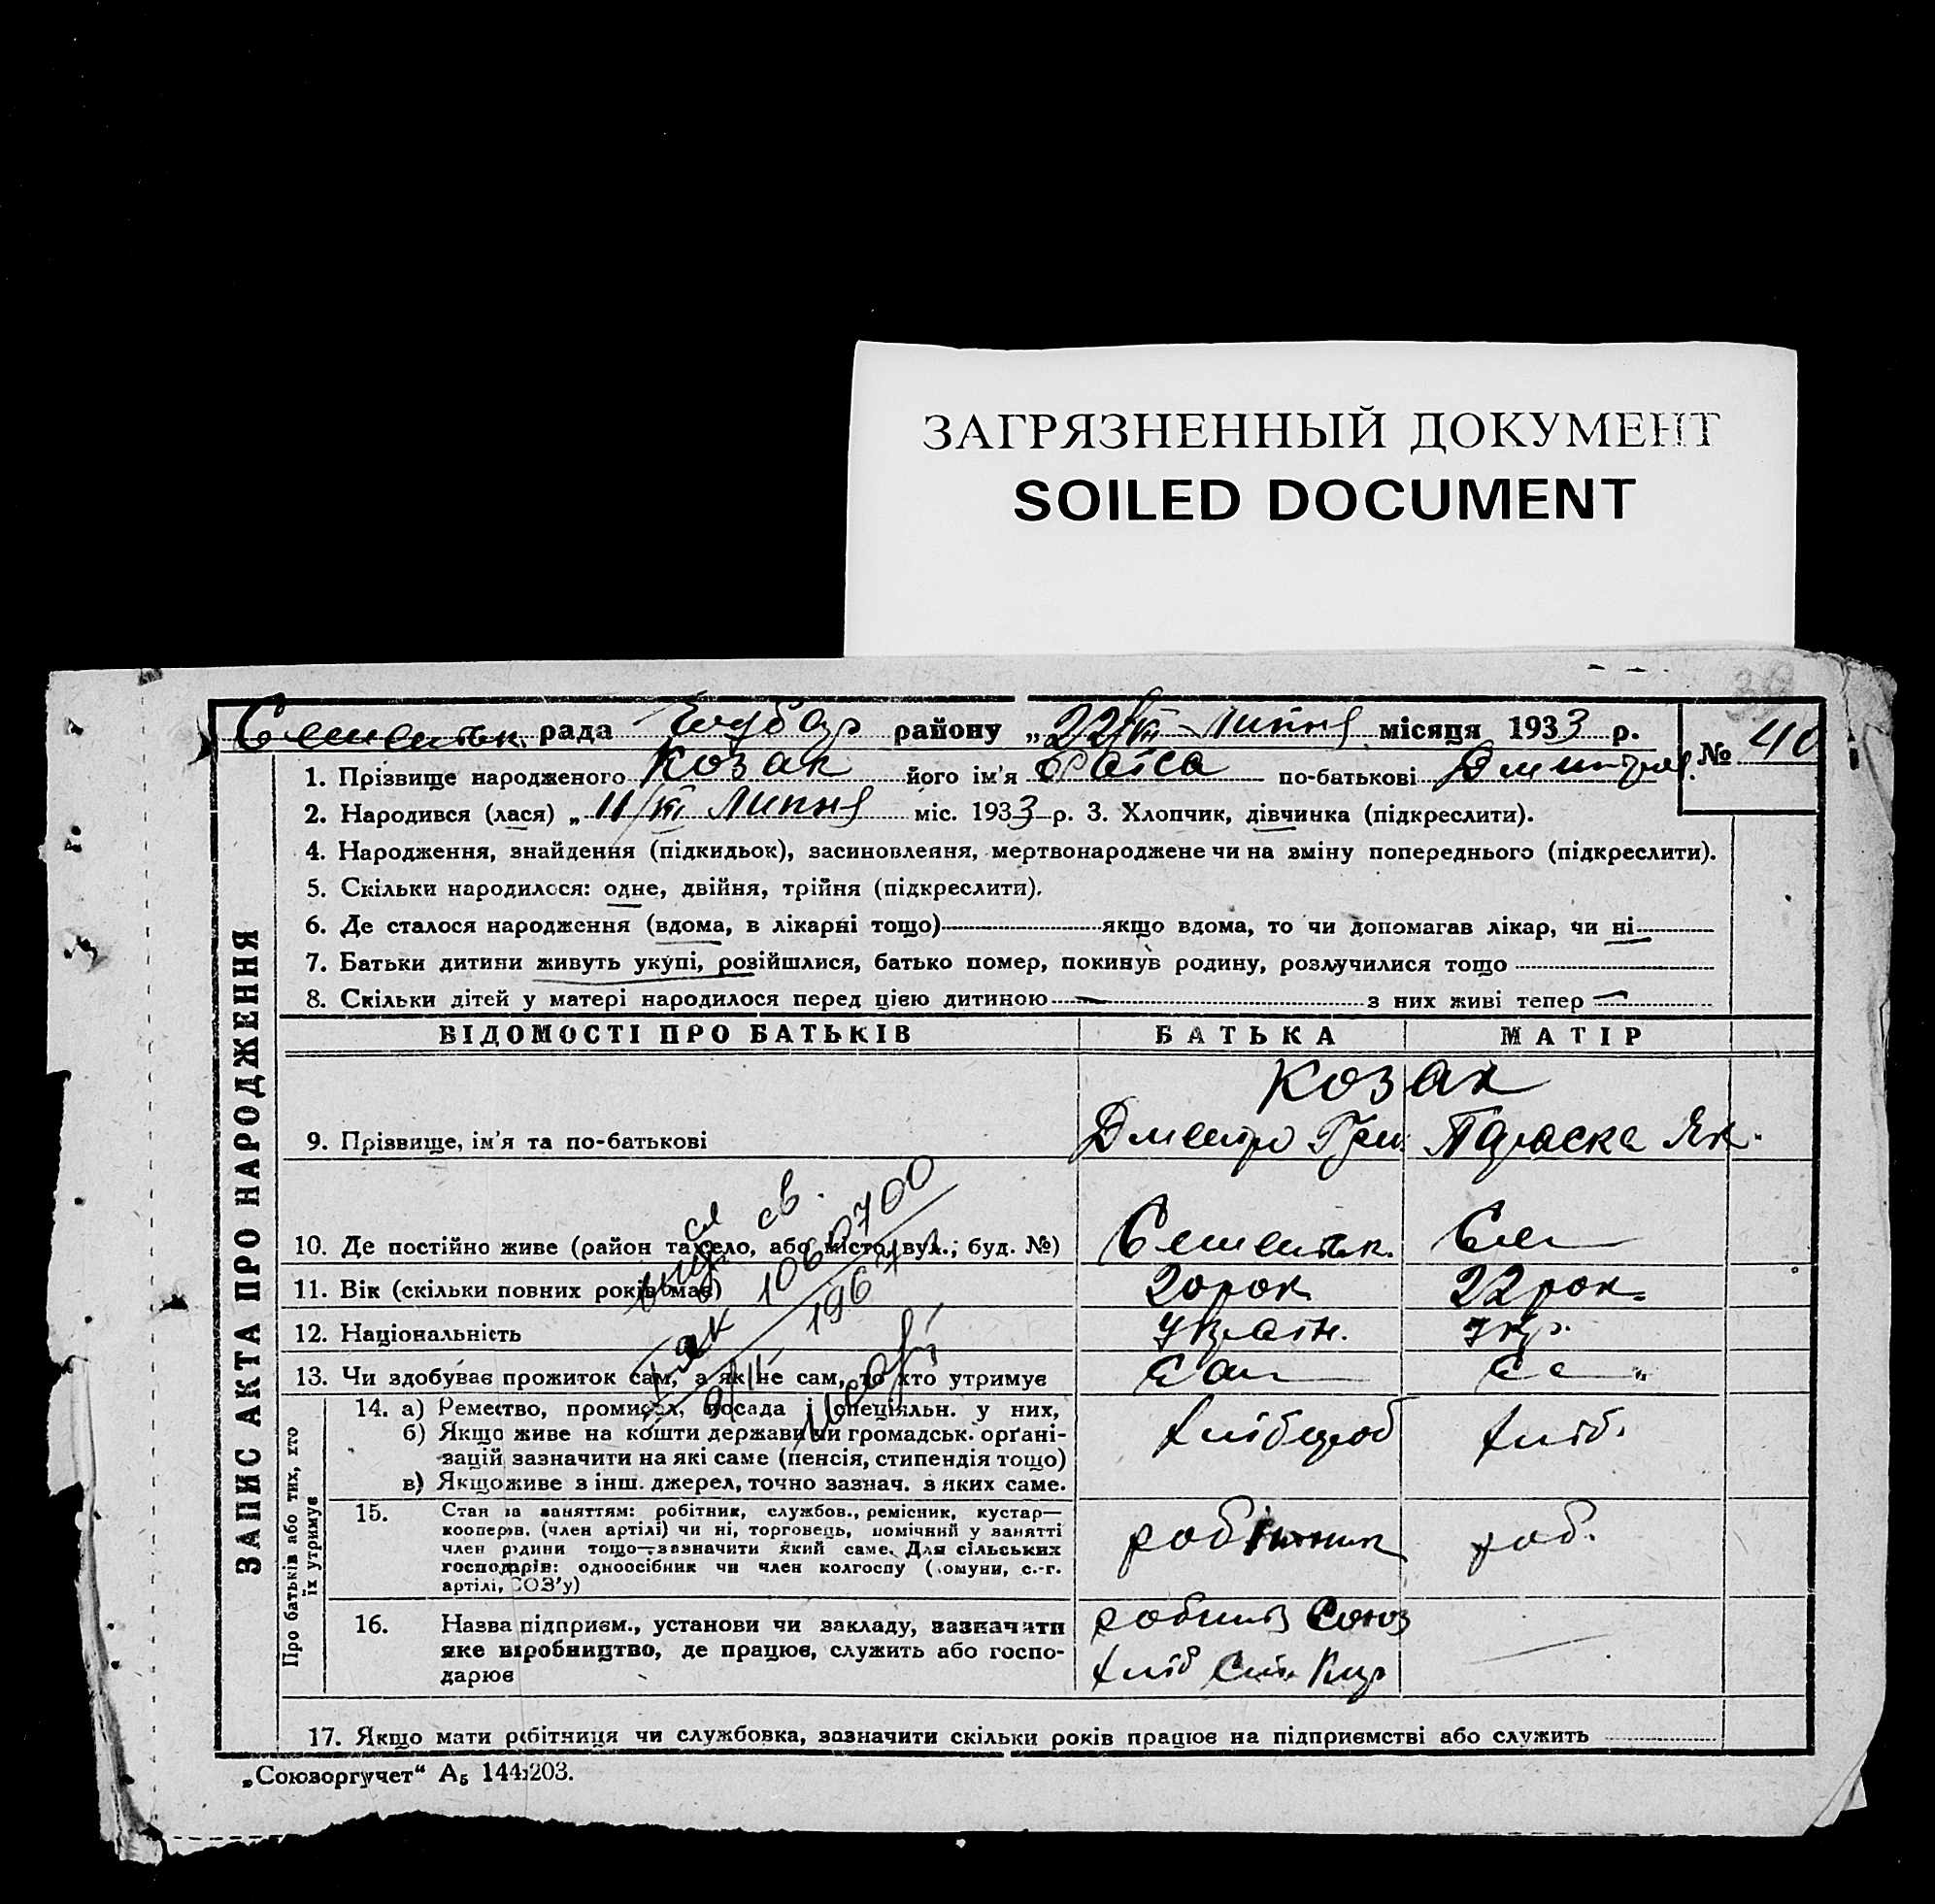 ЗАГРЯЗНЕННЫЙ ДОКУМЕНТ
SOILED DOCUMENT
рада району „22/VII Липня місяця 1933 р.
№ 40
1. Прізвище народженого Козак його ім'я Раїса по-батькові Дмитров.
2. Народився (лася) „11/VII Липня міс. 1933 р. 3. Хлопчик, дівчинка (підкреслити).
4. Народження, знайдення (підкидьок), засиновлення, мертвонароджене чи на зміну попереднього (підкреслити).
5. Скільки народилося: одне, двійня, трійня (підкреслити).
6. Де сталося народження (вдома, в лікарні тощо) якщо вдома, то чи допомагав лікар, чи ні
7. Батьки дитини живуть укупі, розійшлися, батько помер, покинув родину, розлучилися тощо
8. Скільки дітей у матері народилося перед цією дитиною — з них живі тепер —
ЗАПИС АКТА ПРО НАРОДЖЕННЯ
ВІДОМОСТІ ПРО БАТЬКІВ БАТЬКА МАТІР
Козак
9. Прізвище, ім'я та по-батькові Дмитро Гри. Параска Як.
10. Де постійно живе (район та село, або місто, вул.; буд. №)
11. Вік (скільки повних років має) 20 рок. 22 рок.
12. Національність Украін. Укр.
13. Чи здобуває прожиток сам, а як не сам, то хто утримує сам са „
Про батьків або тих, хто їх утримує
14. а) Ремество, промисел, посада і спеціяльн. у них, хлібороб хліб.
б) Якщо живе на кошти держави чи громадськ. орґані-
зацій зазначити на які саме (пенсія, стипендія тощо)
в) Якщо живе з інш. джерел, точно зазнач. з яких саме.
15. Стан за заняттям: робітник, службов., ремісник, кустар—
кооперов. (член артілі) чи ні, торговець, помічний у занятті
член родини тощо—зазначити який саме. Для сільських
господарів: одноосібник чи член колгоспу (комуни, с.-г.
артілі, СОЗ'у)
робітник роб.
16. Назва підприєм., установи чи закладу, зазначити
яке виробництво, де працює, служить або госпо-
дарює
Союз
хліб
17. Якщо мати робітниця чи службовка, зазначити скільки років працює на підприємстві або служить
1060700
1967
„Союзоргучет“ А5 144203.